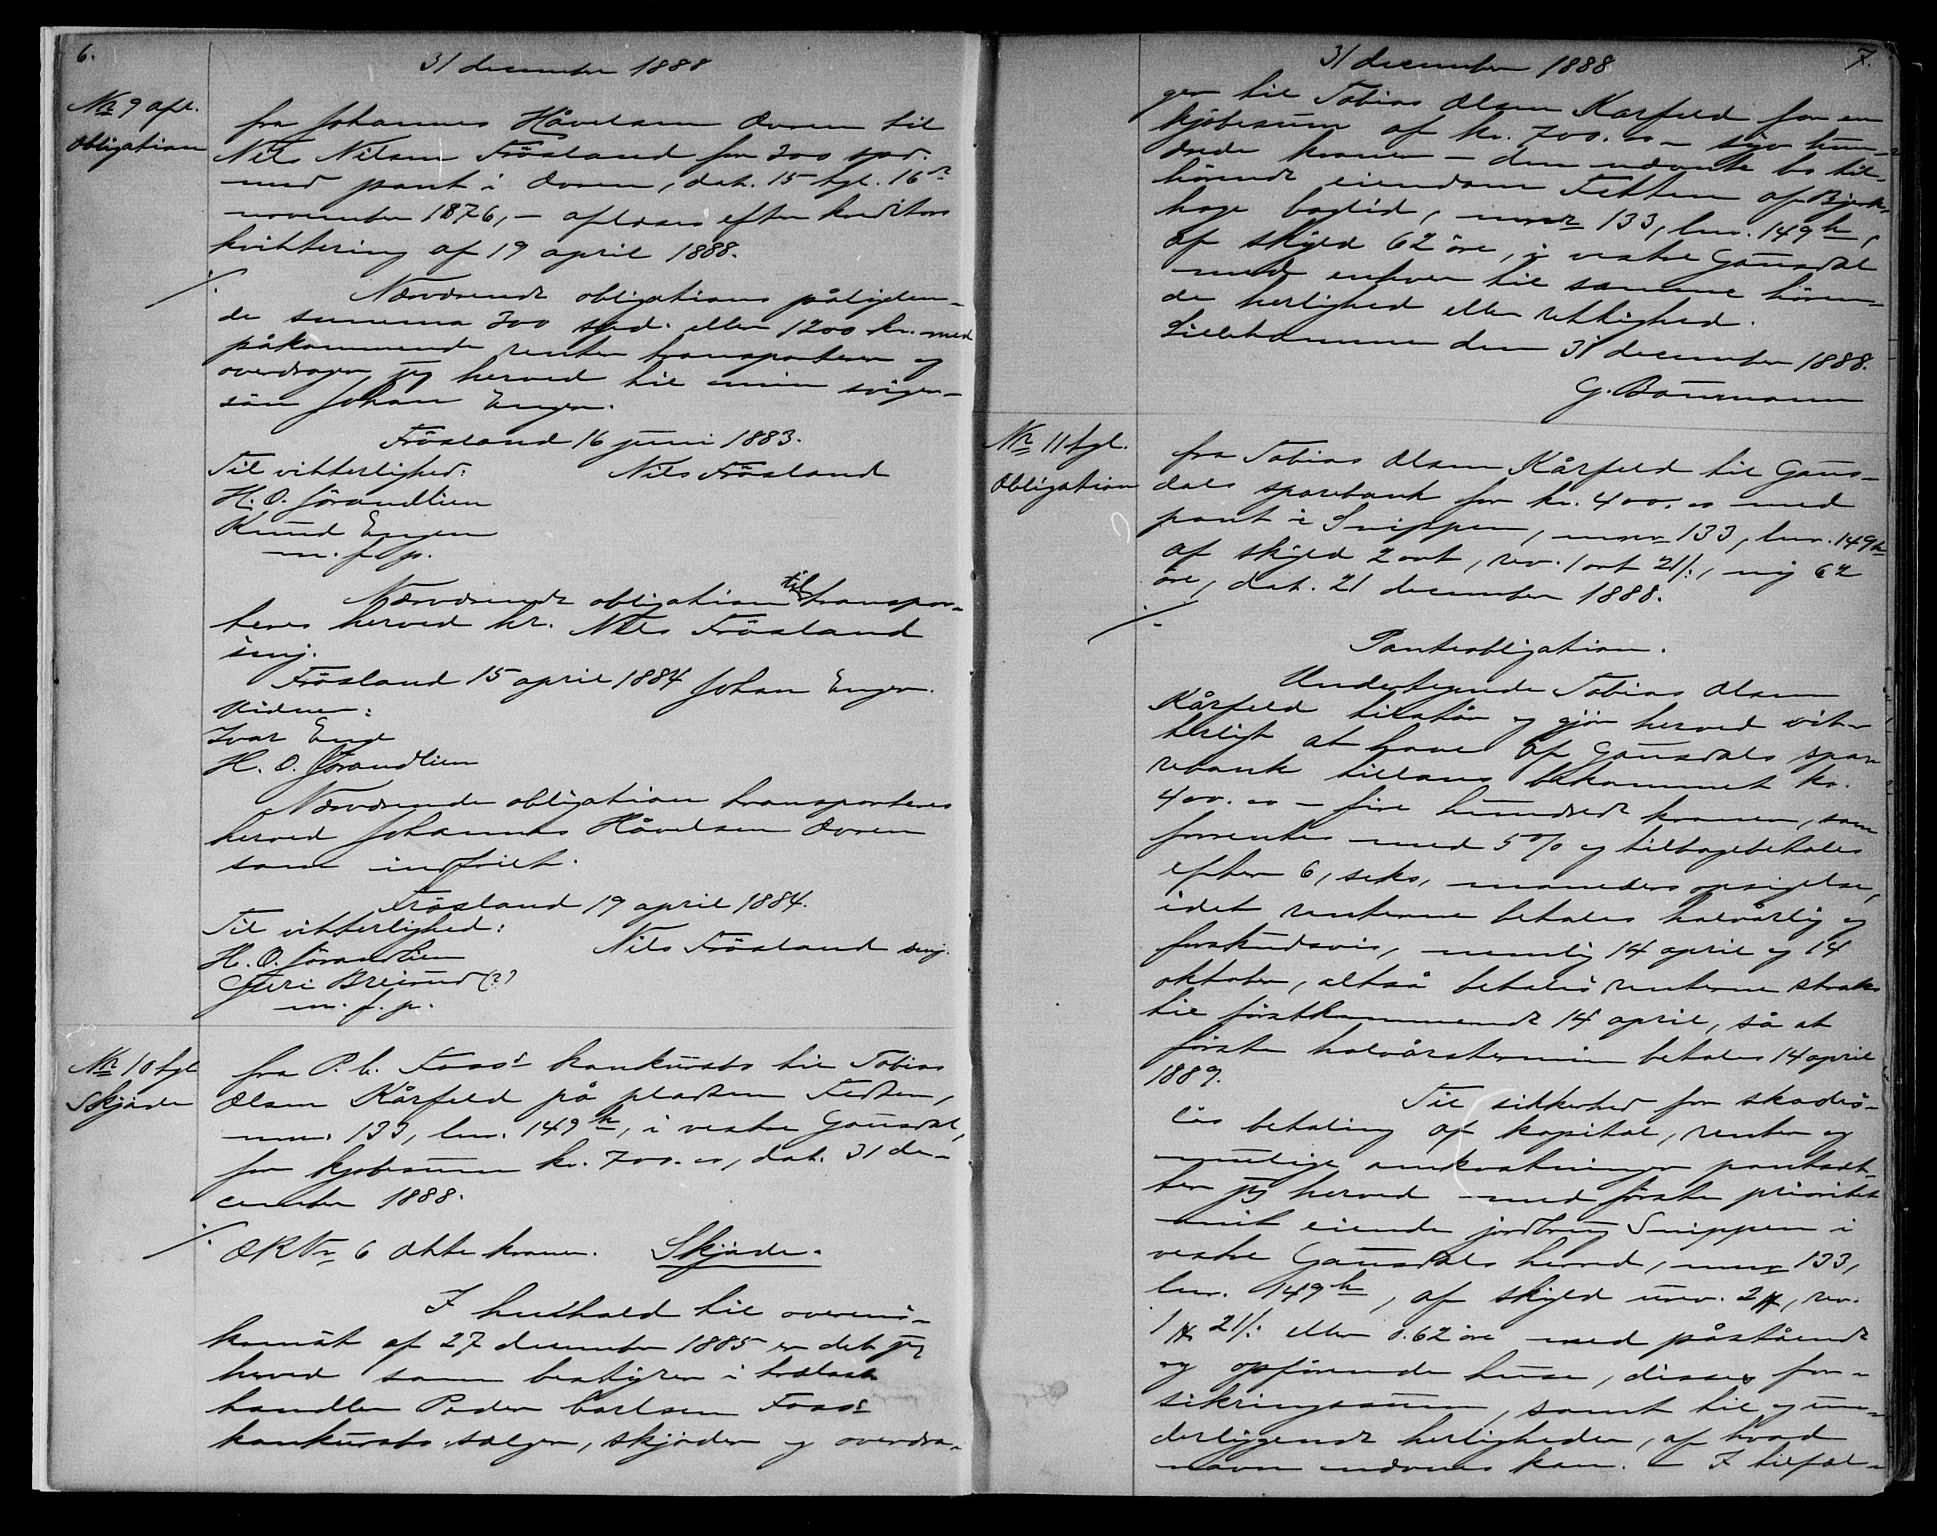 6.
31 december 1888
No 9 afl.
Obligation
fra Johannes Håvelsen Ovren til
Nils Nilsen Frösland for 300 spd.
med pant i Ovren, dat. 15 tgl. 16de
november 1876, – aflæses efter kreditors
kvittering af 19 april 1888.
Nærværende obligations pålyden-
de summa 300 spd. eller 1200 kr. med
påkommende renter transporterer og
overdrager jeg herved til min sviger-
sön Johan Enger.
Frösland 16 juni 1883.
Til vitterlighed:
Nils Frösland
H. O. Jörandlien
Knud Engen
m. f. p.
Nærværende obligation til transpor-
teres herved hr. Nils Frösland
senj.
Frösland 15 april 1884 Johan Enger.
Vidner:
Ivar Enge
H. O. Jörandlien
Nærværende obligation transporteres
herved Johannes Håvelsen Ovren
som indfriet.
Frösland 19 april 1884.
Til vitterlighed:
Nils Frösland senj.
H. O. Jörandlien
Guri Breiund (?)
m. f. p.
No 10 tgl
Skjöde
fra P. C. Foss's konkursbo til Tobias
Olsen Kårfeld på pladsen Fetten,
mnr. 133, lnr. 149h, i vestre Gausdal,
for kjøbesum kr. 700.00, dat. 31 de-
cember 1888.
OKNo 6 Otte kroner. Skjöde.
I henhold til overens-
komst af 27 december 1885 er det jeg
herved som bestyrer i trælast
handler Peder Carlsen Foss's
konkursbo sælger, skjöder og overdra-
7.
31 december 1888
ger til Tobias Olsen Karfeld for en
kjöbesum af kr. 700.00 – syv hun-
drede kroner – den nævnte bo til-
hörende eiendom Fetten af Bjerke-
hage bøglid, mnr 133, lnr. 149h,
af skyld 62 öre, i vestre Gausdal
med enhver til samme hören-
de herlighed eller rettighed.
Lillehammer den 31 december 1888.
G. Baumann
No 11 tgl.
Obligation
fra Tobias Olsen Kårfeld til Gaus-
dals sparebank for kr. 400.00 med
pant i Snippen, mnr 133, lnr. 149h
af skyld 2 ort, rev. 1 ort 21/:, ny 62
öre, dat. 21 december 1888.
Panteobligation.
Undertegnede Tobias Olsen
Kårfeld tilstår og gjör herved vit-
terligt at have af Gausdals spa-
rebank tillåns bekommet kr.
400.00 – fire hundrede kroner, som
forrentes med 5 % og tilbagebetales
efter 6, seks, måneders opsigelse,
idet renterne betales halvårlig og
forskudsvis, nemlig 14 april og 14
oktober, altså betales renterne straks
til förstkommende 14 april, så at
förste halvårstermin betales 14 april
1889.
Til sikkerhed for skades-
lös betaling af kapital, renter og
mulige omkostninger pantsæt-
ter jeg herved med förste prioritet
mit eiende jordbrug Snippen i
vestre Gausdals herred, mnr 133,
lnr. 149h, af skyld urev. 2 #, rev.
1 # 21/: eller 0.62 öre med påstående
og opförende huse, disses for-
sikringssum, samt til og un-
derliggende herligheder, af hvad
navn nævnes kan. – I tilfæl-